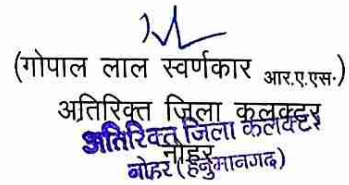 (गोपाल लाल स्वर्णकार आर.ए.एस.)
अतिरिक्त जिला कलक्टर
अतिरिक्त जिला कलेक्टर
नोहर
नोहर (हनुमानगढ़)